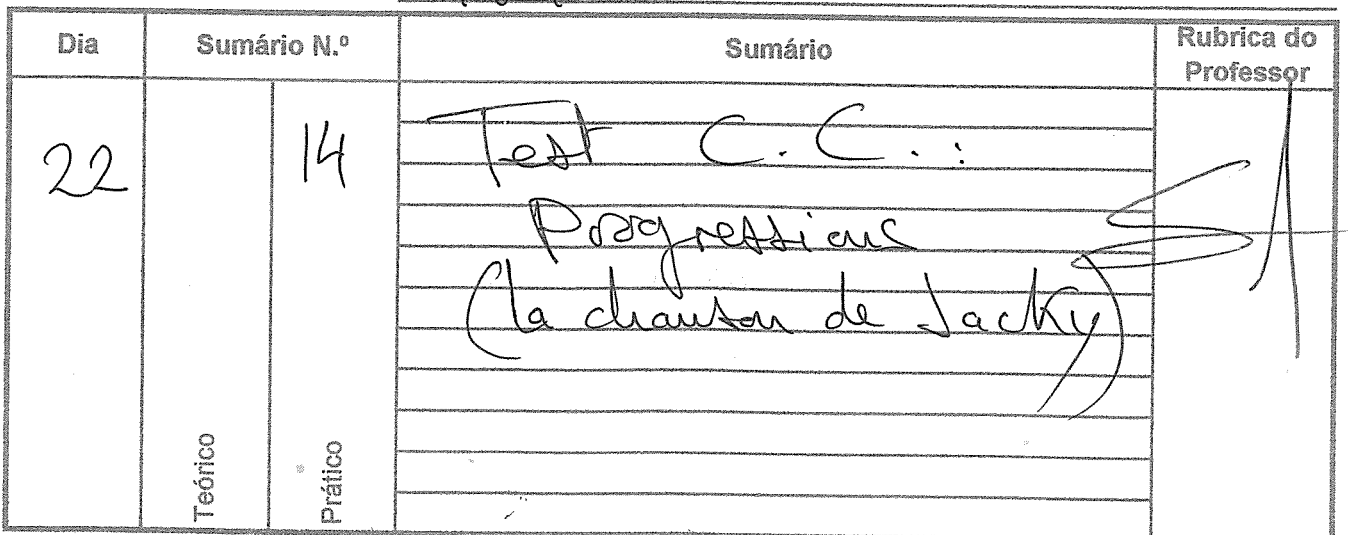 Dia Sumário N.º Sumário Rubrica do Professor
22 14 Test C.C.:
Progressions
(la chanson de Jacky)
Teórico Prático